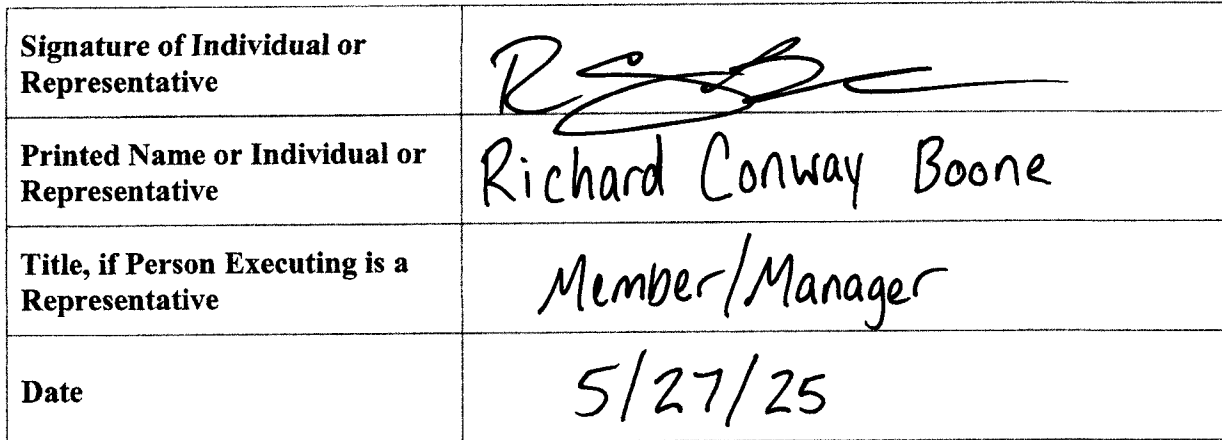 Signature of Individual or
Representative
Printed Name or Individual or
Representative
Richard Conway Boone
Title, if Person Executing is a
Representative
Member/Manager
Date
5/27/25